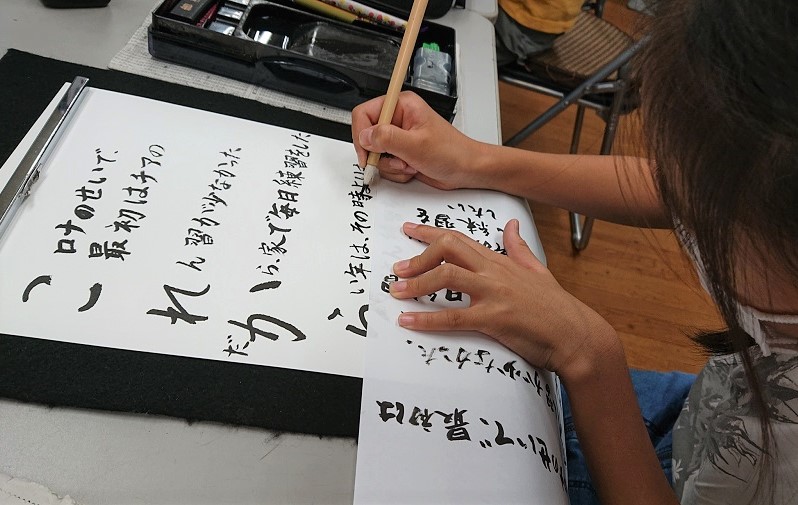 こロナのせいで、
最初はチアの
れん習が少なかった
だから、家で毎日練習をした
らい年は、その時より
のせいで、最初は
が少なかった、